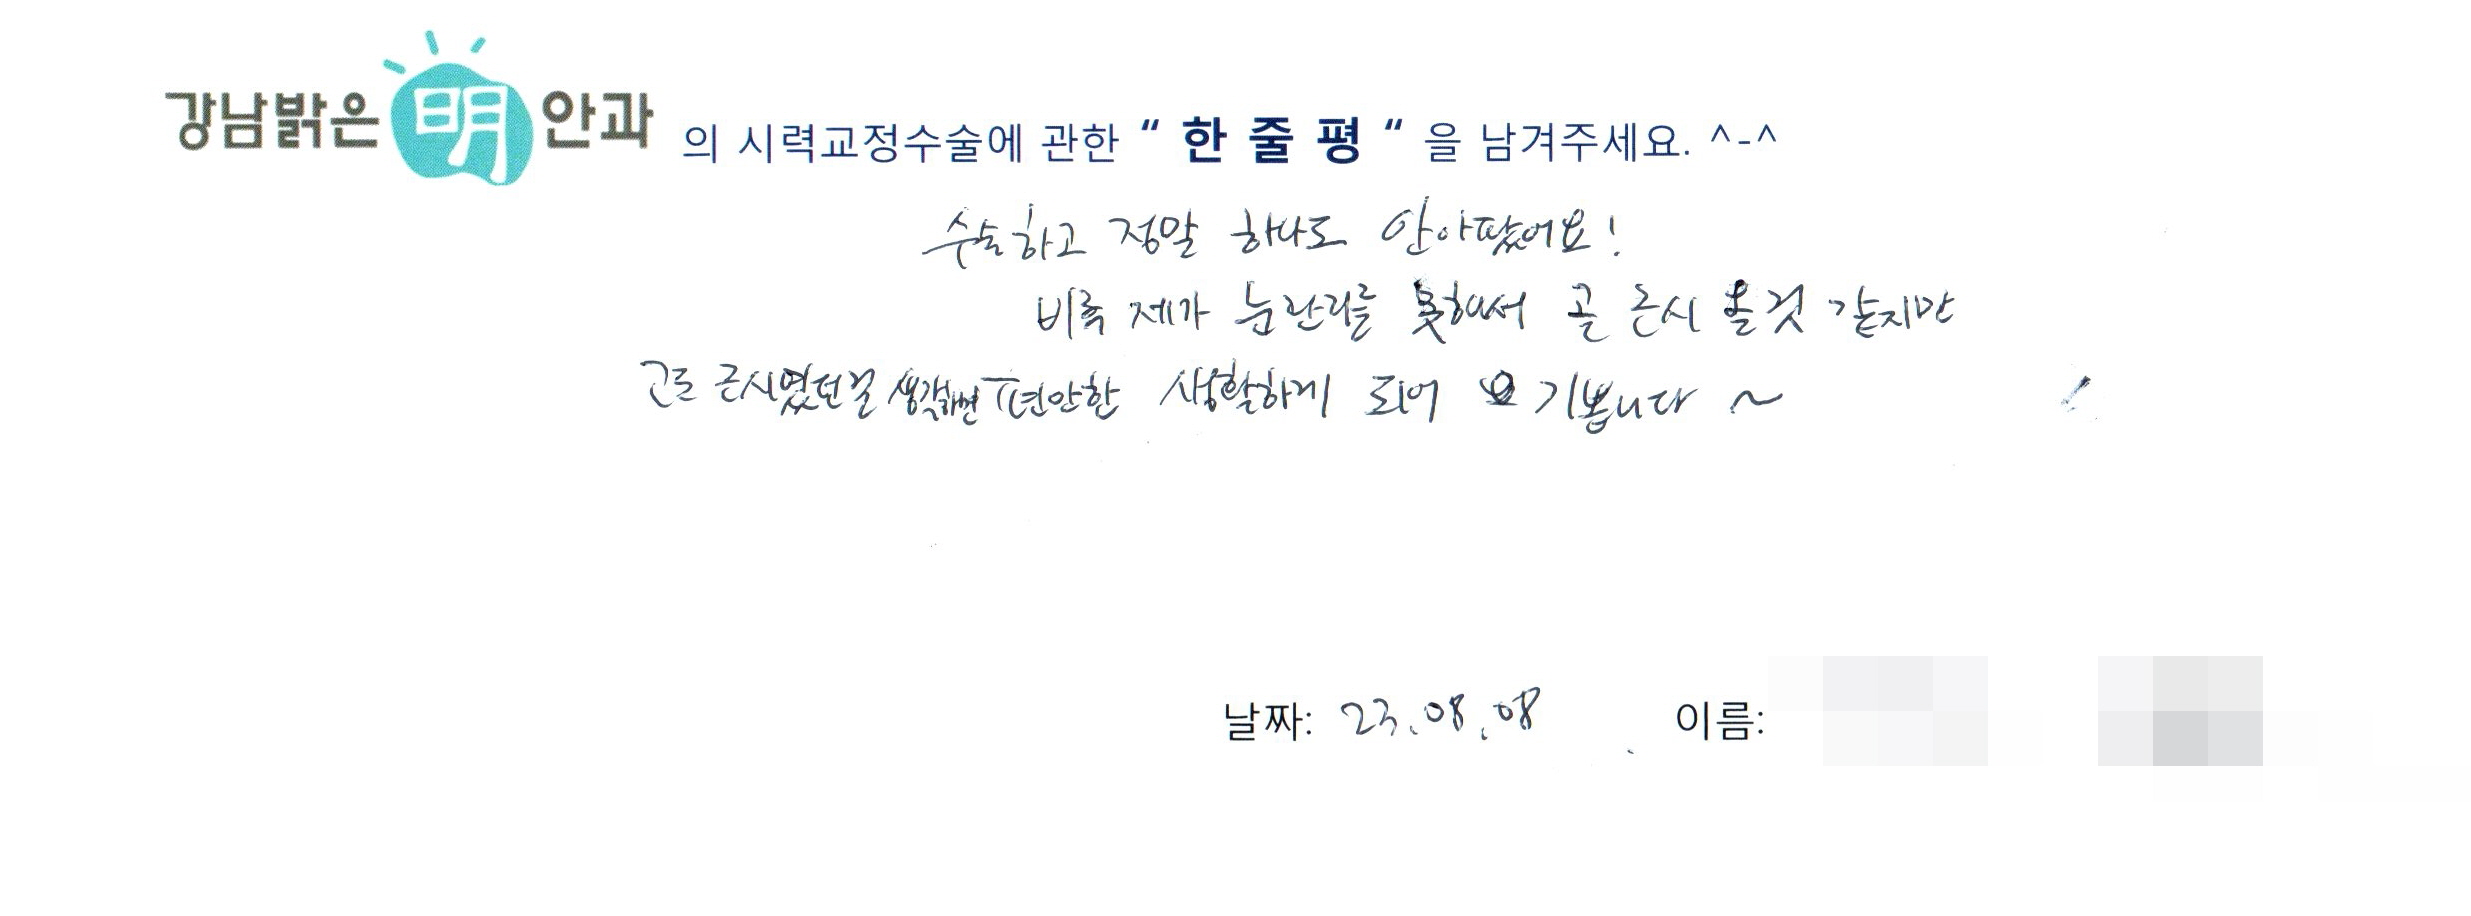 강남밝은明안과 의 시력교정수술에 관한 “ 한 줄 평 “ 을 남겨주세요. ^-^
수술하고 정말 하나도 안아팠어요!
비록 제가 눈관리를 못해서 곧 근시 올것 같지만
고도 근시였던걸 생각하면 편안한 생활하게 되어 기쁩니다 ~
날짜: 23.08.08 이름: